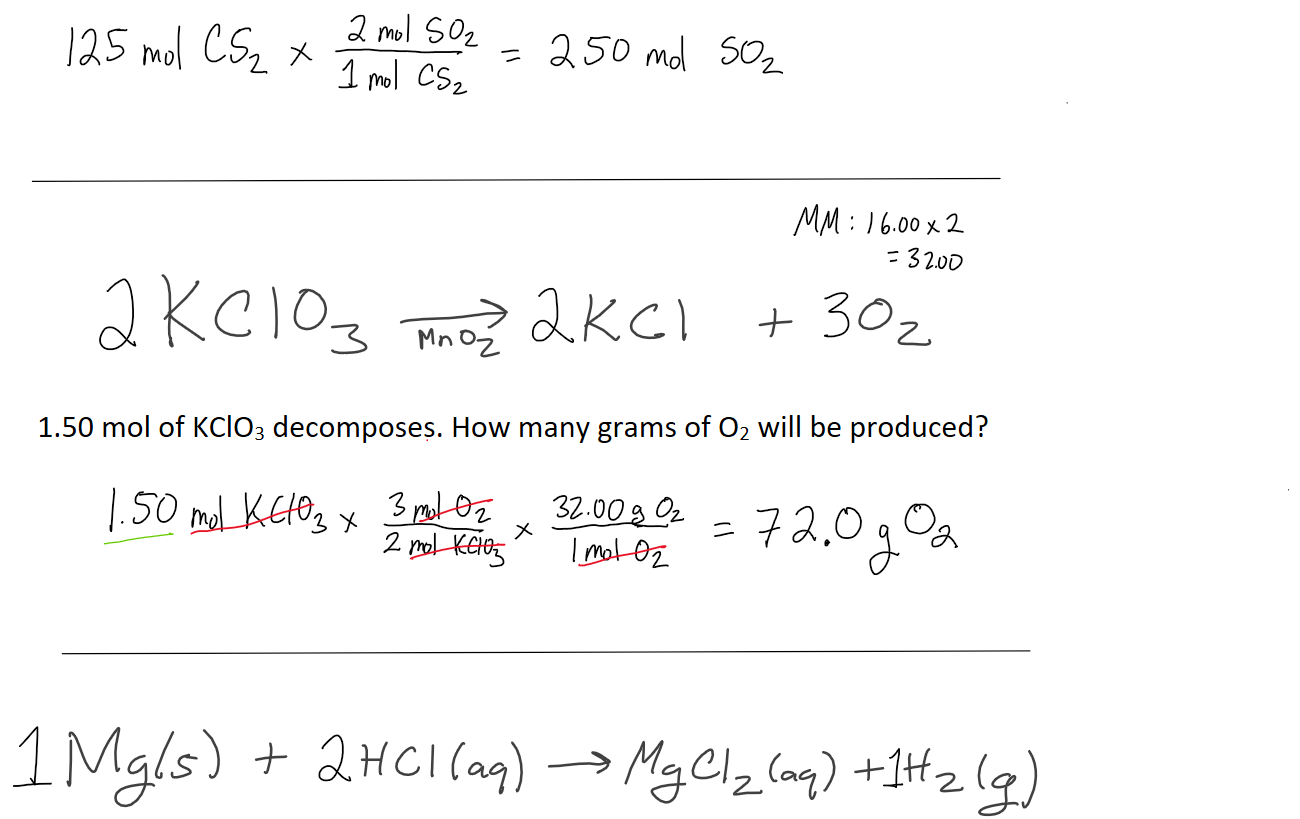 125 mol CS₂ × 2 mol SO₂ / 1 mol CS₂ = 250 mol SO₂
MM : 16.00 × 2
= 32.00
2KClO₃ → MnO₂ 2KCl + 3O₂
1.50 mol of KClO₃ decomposes. How many grams of O₂ will be produced?
1.50 mol KClO₃ × 3 mol O₂ / 2 mol KClO₃ × 32.00 g O₂ / 1 mol O₂ = 72.0 g O₂
1Mg(s) + 2HCl(aq) → MgCl₂(aq) + 1H₂(g)